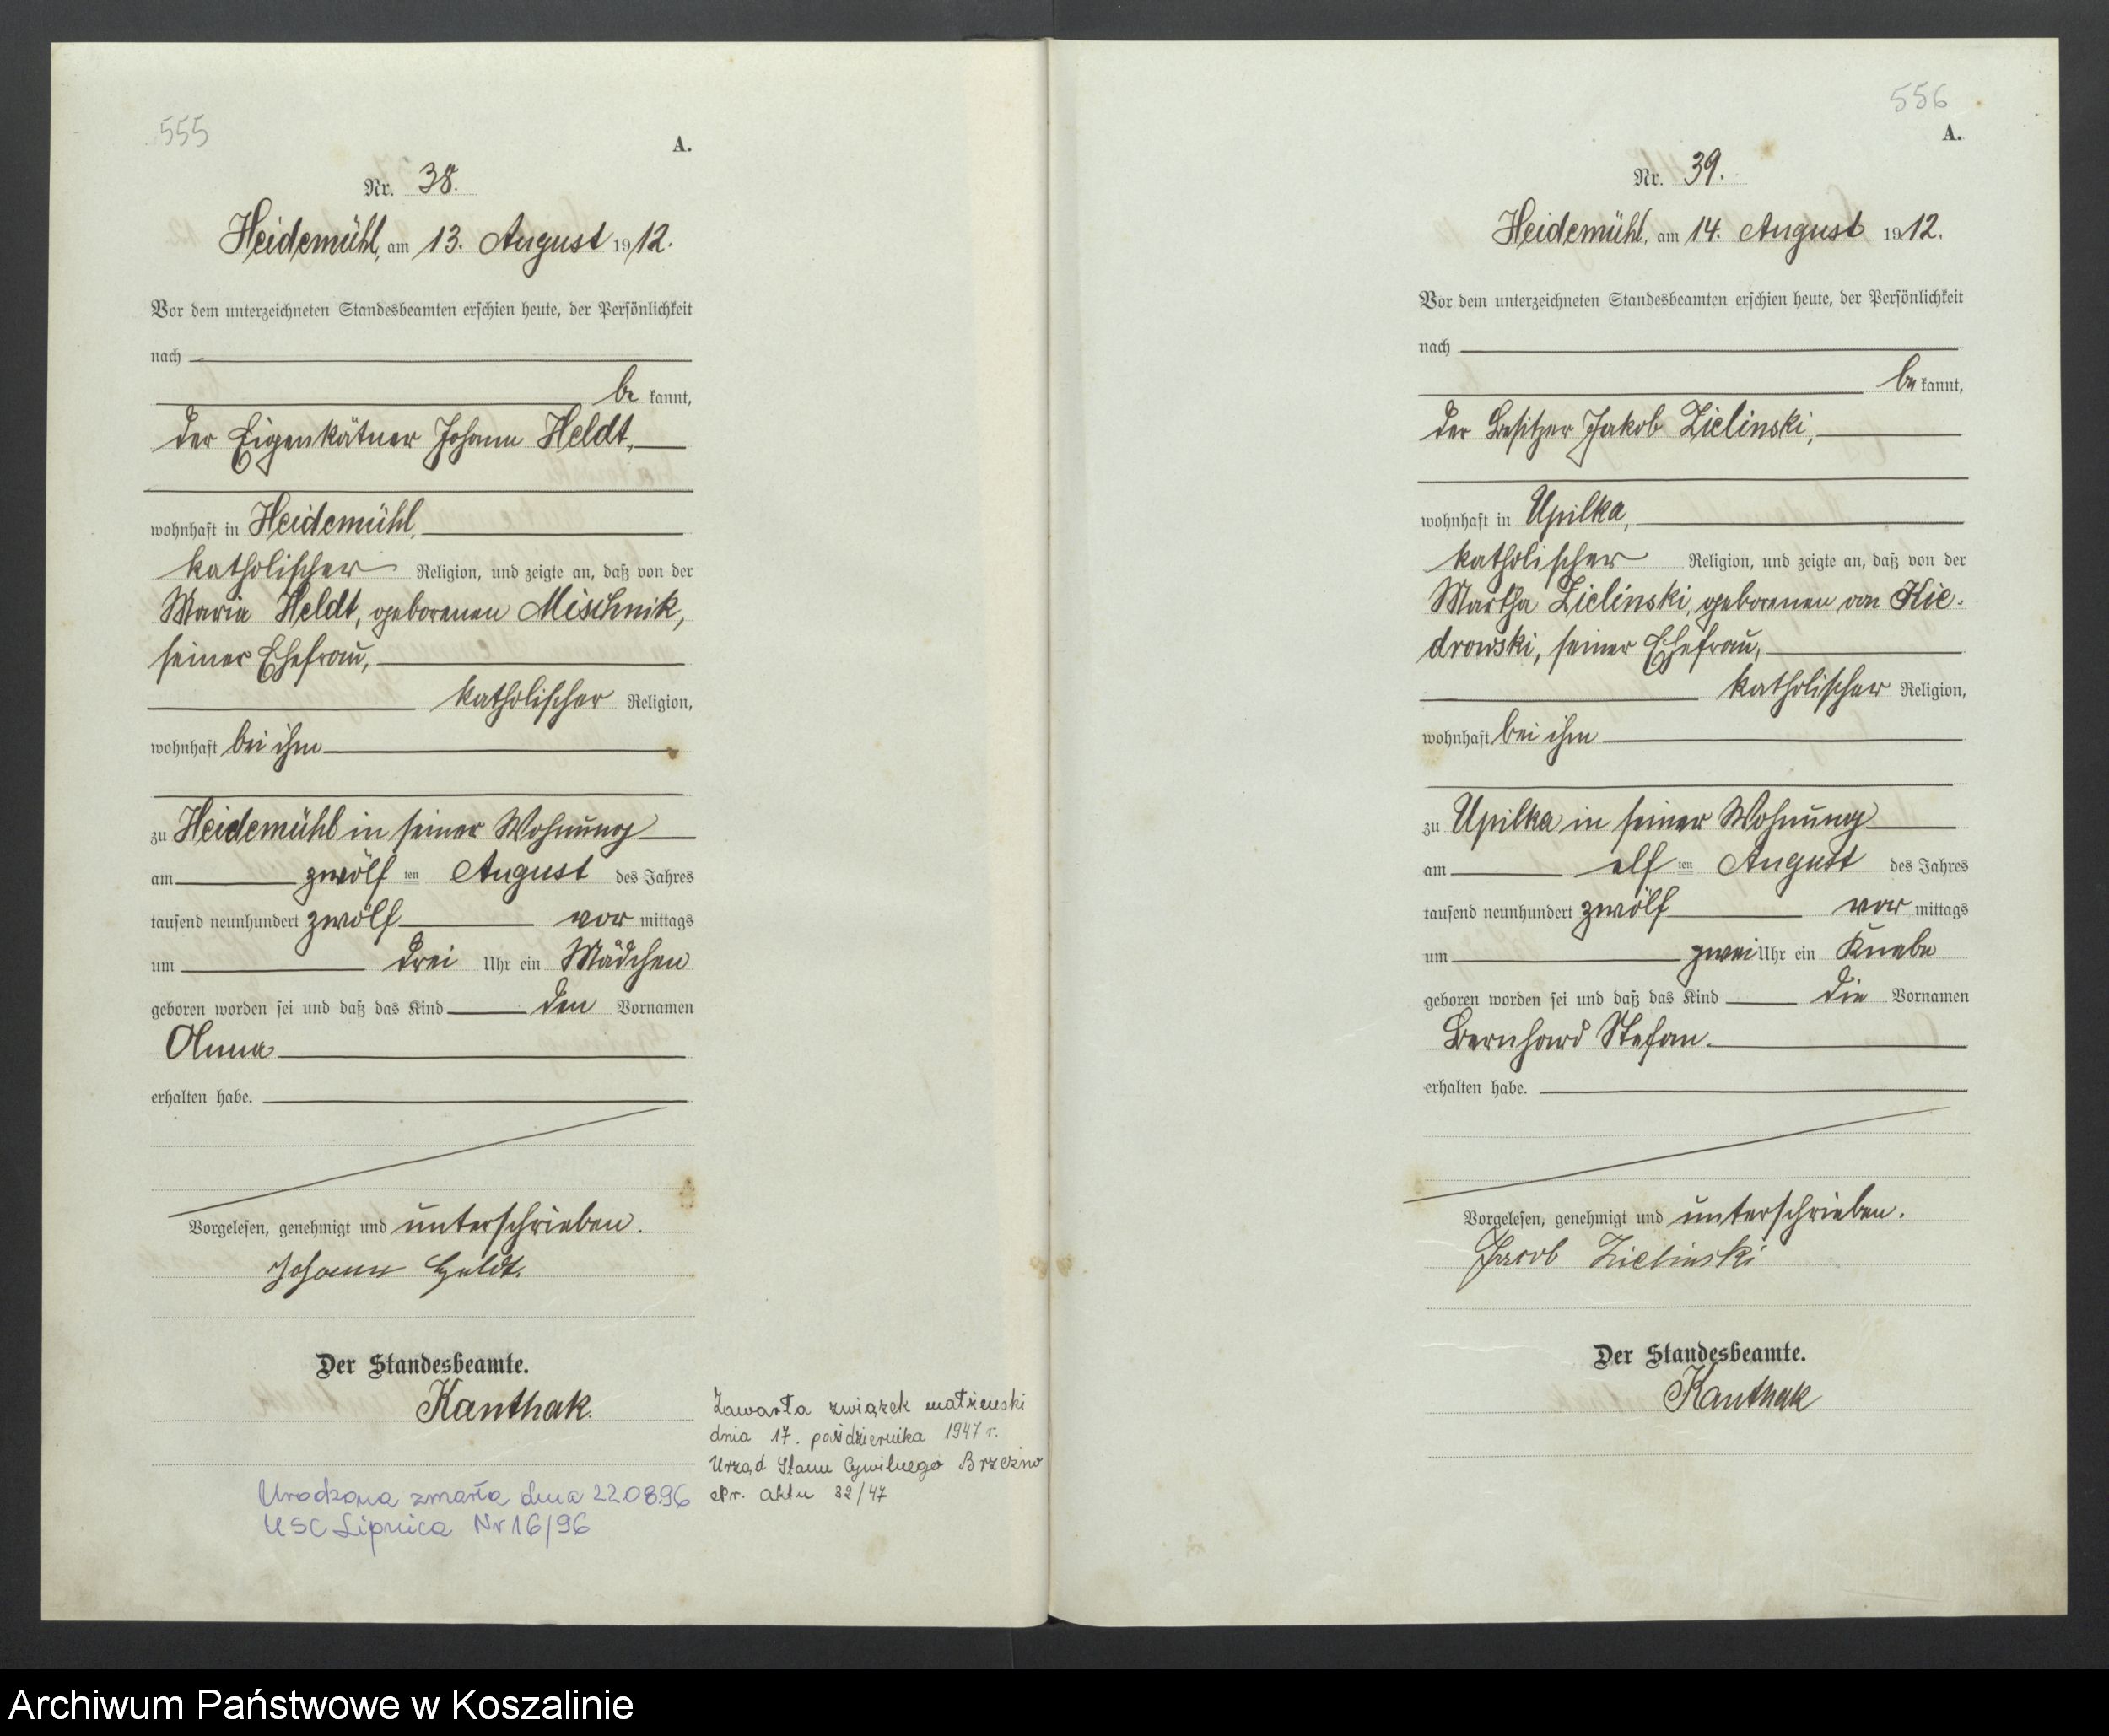 555
A.
Nr. 38.
Heidemühl, am 13. August 1912.
Vor dem unterzeichneten Standesbeamten erschien heute, der Persönlichkeit
nach
be kannt,
der Eigenkätner Johann Heldt,
wohnhaft in Heidemühl,
katholischer Religion, und zeigte an, daß von der
Maria Heldt, geborenen Mischnik,
seiner Ehefrau,
katholischer Religion,
wohnhaft bei ihm
zu Heidemühl in seiner Wohnung
am zwölf ten August des Jahres
tausend neunhundert zwölf vor mittags
um drei Uhr ein Mädchen
geboren worden sei und daß das Kind den Vornamen
Anna
erhalten habe.
Vorgelesen, genehmigt und unterschrieben.
Johann Heldt.
Der Standesbeamte.
Kanthak.
Zawarła związek małżeński
dnia 17. października 1947 r.
Urząd Stanu Cywilnego Brzeźno
Nr. aktu 32/47
Urodzona zmarła dnia 22.08.96
USC Lipnica Nr 16/96
556
A.
Nr. 39.
Heidemühl, am 14. August 1912.
Vor dem unterzeichneten Standesbeamten erschien heute, der Persönlichkeit
nach
be kannt,
der Besitzer Jakob Zielinski,
wohnhaft in Upilka,
katholischer Religion, und zeigte an, daß von der
Martha Zielinski, geborenen von Kie-
drowski, seiner Ehefrau,
katholischer Religion,
wohnhaft bei ihm
zu Upilka in seiner Wohnung
am elf ten August des Jahres
tausend neunhundert zwölf vor mittags
um zwei Uhr ein Knabe
geboren worden sei und daß das Kind die Vornamen
Bernhard Stefan.
erhalten habe.
Vorgelesen, genehmigt und unterschrieben.
Jacob Zielinski
Der Standesbeamte.
Kanthak
Archiwum Państwowe w Koszalinie